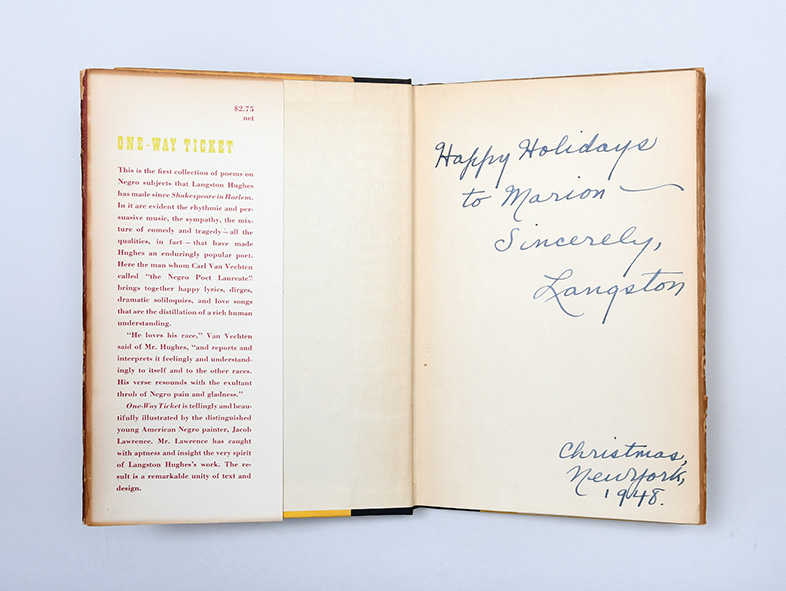 $2.75
net
ONE-WAY TICKET
This is the first collection of poems on
Negro subjects that Langston Hughes
has made since Shakespeare in Harlem.
In it are evident the rhythmic and per-
suasive music, the sympathy, the mix-
ture of comedy and tragedy—all the
qualities, in fact—that have made
Hughes an enduringly popular poet.
Here the man whom Carl Van Vechten
called "the Negro Poet Laureate"
brings together happy lyrics, dirges,
dramatic soliloquies, and love songs
that are the distillation of a rich human
understanding.
"He loves his race," Van Vechten
said of Mr. Hughes, "and reports and
interprets it feelingly and understand-
ingly to itself and to the other races.
His verse resounds with the exultant
throb of Negro pain and gladness."
One-Way Ticket is tellingly and beau-
tifully illustrated by the distinguished
young American Negro painter, Jacob
Lawrence. Mr. Lawrence has caught
with aptness and insight the very spirit
of Langston Hughes's work. The re-
sult is a remarkable unity of text and
design.
Happy Holidays
to Marion —
Sincerely,
Langston
Christmas,
New York,
1948.